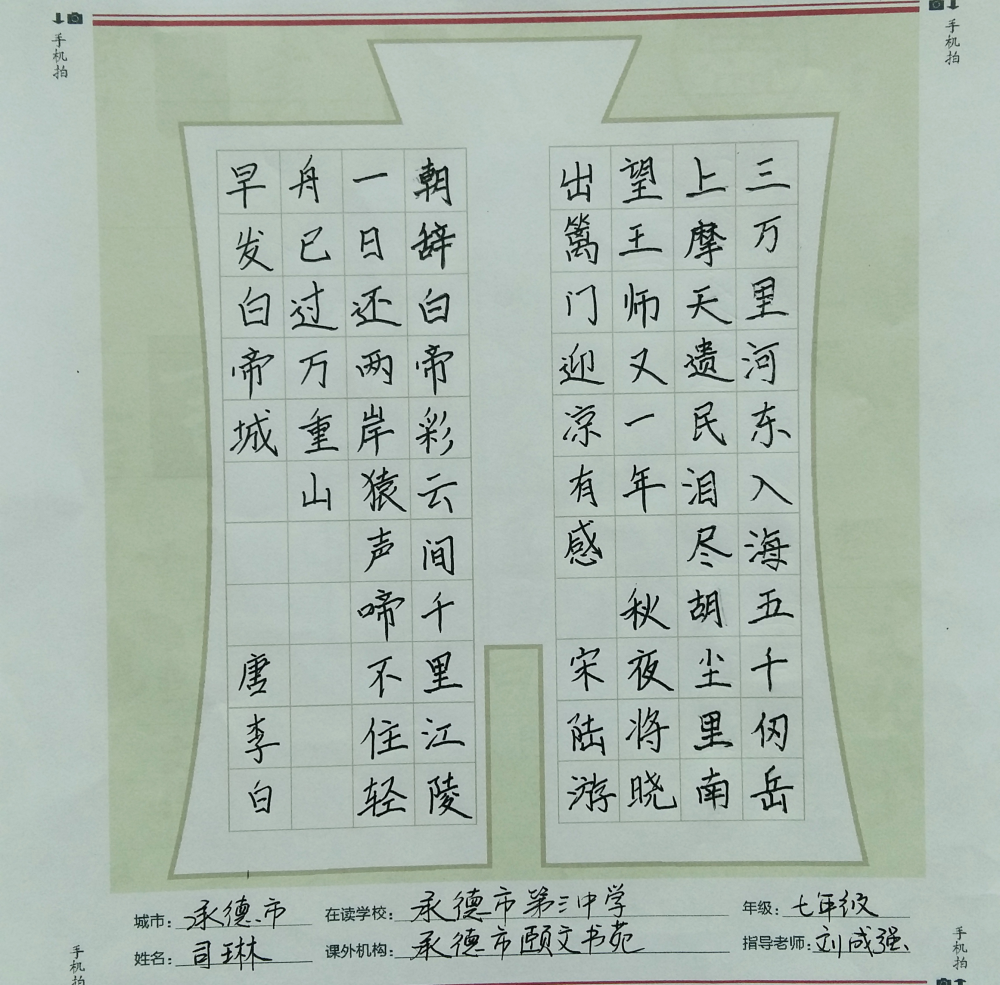 手机拍
手机拍
三万里河东入海五千仞岳
上摩天遗民泪尽胡尘里南
望王师又一年 秋夜将晓
出篱门迎凉有感 宋陆游
朝辞白帝彩云间千里江陵
一日还两岸猿声啼不住轻
舟已过万重山
早发白帝城 唐李白
城市：承德市 在读学校：承德市第三中学 年级：七年级
姓名：司琳 课外机构：承德市颐文书苑 指导老师：刘成强
手机拍
手机拍